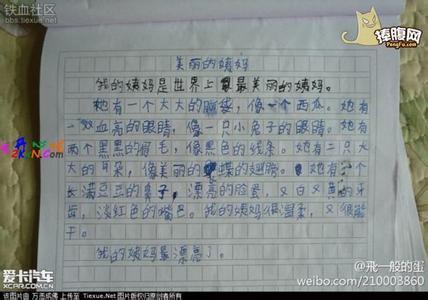 铁血社区
bbs.tiexue.net
捧腹网
美丽的姨妈
我的姨妈是世界上最美丽的姨妈。
她有一个大大的,像一个西瓜。她有
一双血亮的眼睛,像一只小兔子的眼睛。她有
两个黑黑的眉毛,像黑色的线条。她有二只大
大的耳朵,像美丽的蝶的翅膀。她有一个
长满豆豆的鼻子,漂亮的脸蛋,又白又黄的牙
齿,淡红色的嘴色。我的姨妈很温柔,又很能
干。
我的姨妈最漂亮了。
爱卡汽车
xcar.com.cn
@飛一般的蛋
weibo.com/210003860
[图片由网友 万恶成佛 上传至 Tiexue.Net 图片版权归原创者所有]